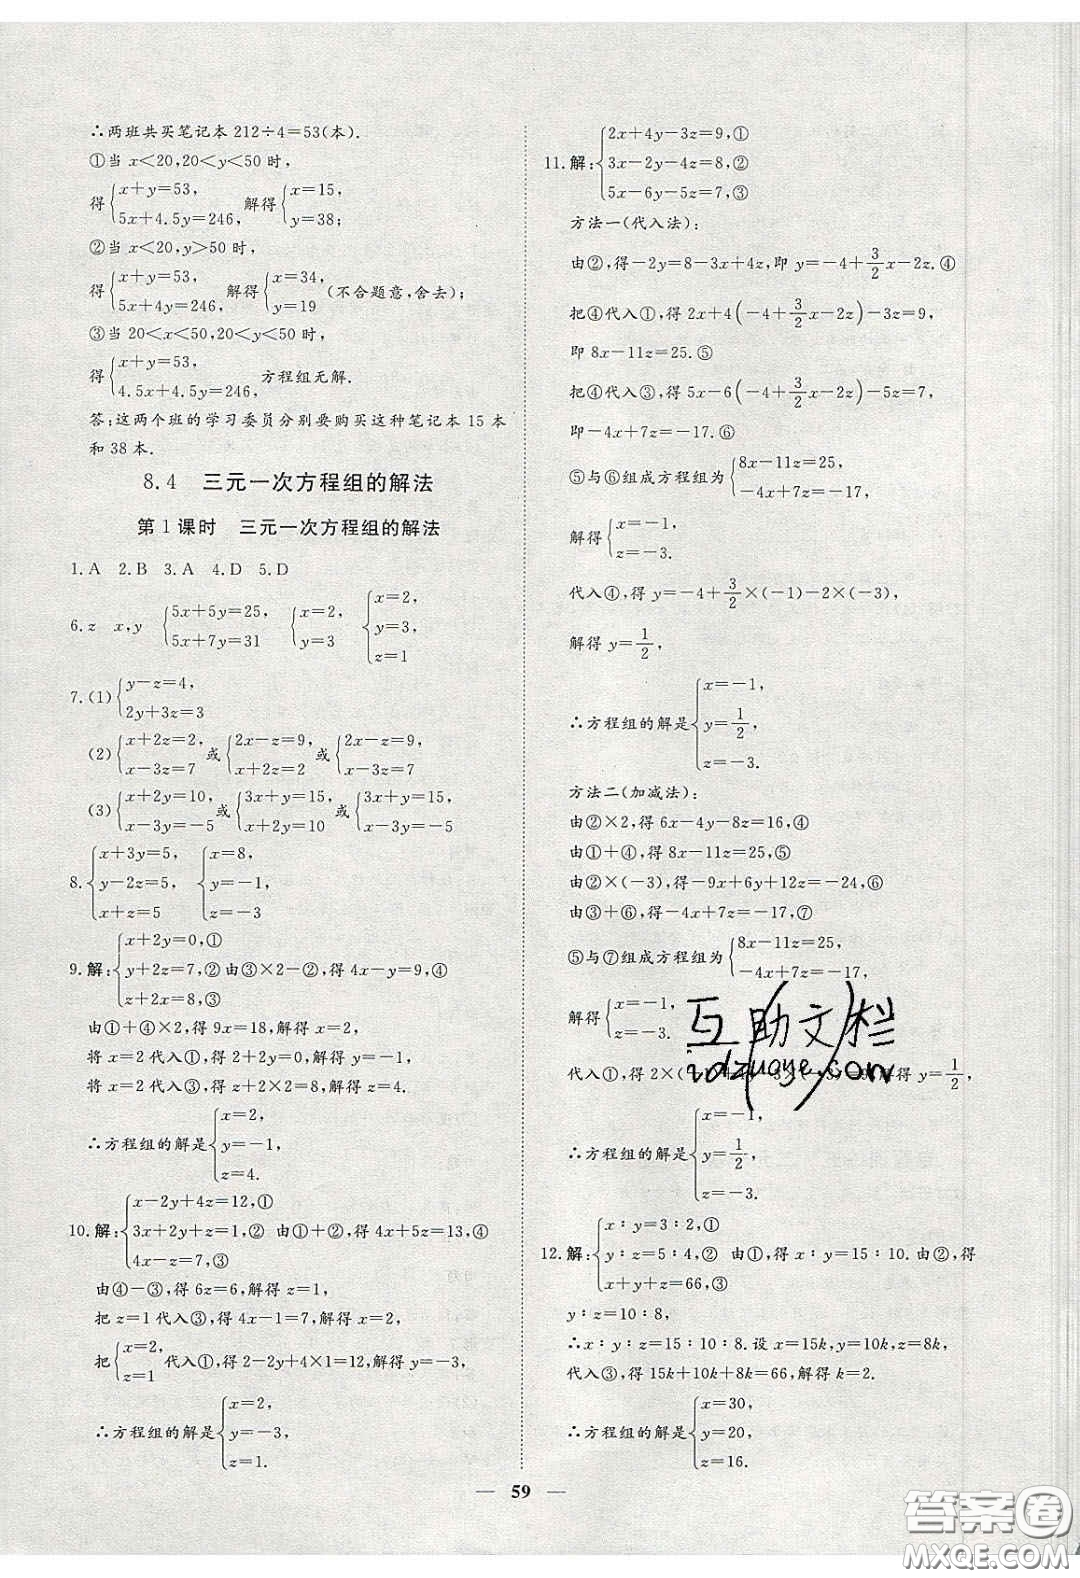 ∴两班共买笔记本 212÷4=53(本).
①当 x<20,20<y<50 时,
得{x+y=53, 5x+4.5y=246, 解得{x=15, y=38;
②当 x<20,y>50 时,
得{x+y=53, 5x+4y=246, 解得{x=34, y=19 (不合题意,舍去);
③当 20<x<50,20<y<50 时,
得{x+y=53, 4.5x+4.5y=246, 方程组无解.
答:这两个班的学习委员分别要购买这种笔记本 15 本
和 38 本.
8.4 三元一次方程组的解法
第 1 课时 三元一次方程组的解法
1.A 2.B 3.A 4.D 5.D
6.z x,y {5x+5y=25, 5x+7y=31 {x=2, y=3 {x=2, y=3, z=1
7.(1){y-z=4, 2y+3z=3
(2){x+2z=2, x-3z=7 或{2x-z=9, x+2z=2 或{2x-z=9, x-3z=7
(3){x+2y=10, x-3y=-5 或{3x+y=15, x+2y=10 或{3x+y=15, x-3y=-5
8.{x+3y=5, y-2z=5, x+z=5 {x=8, y=-1, z=-3
9.解:{x+2y=0,① y+2z=7,② z+2x=8,③ 由③×2-②,得 4x-y=9,④
由①+④×2,得 9x=18,解得 x=2,
将 x=2 代入①,得 2+2y=0,解得 y=-1,
将 x=2 代入③,得 z+2×2=8,解得 z=4,
∴方程组的解是{x=2, y=-1, z=4.
10.解:{x-2y+4z=12,① 3x+2y+z=1,② 4x-z=7,③ 由①+②,得 4x+5z=13,④
由④-③,得 6z=6,解得 z=1,
把 z=1 代入③,得 4x-1=7,解得 x=2,
把{x=2, z=1 代入①,得 2-2y+4×1=12,解得 y=-3,
∴方程组的解是{x=2, y=-3, z=1.
11.解:{2x+4y-3z=9,① 3x-2y-4z=8,② 5x-6y-5z=7,③
方法一(代入法):
由②,得-2y=8-3x+4z,即 y=-4+3/2x-2z.④
把④代入①,得 2x+4(-4+3/2x-2z)-3z=9,
即 8x-11z=25.⑤
把④代入③,得 5x-6(-4+3/2x-2z)-5z=7,
即-4x+7z=-17.⑥
⑤与⑥组成方程组为{8x-11z=25, -4x+7z=-17,
解得{x=-1, z=-3.
代入④,得 y=-4+3/2×(-1)-2×(-3),
解得 y=1/2,
∴方程组的解是{x=-1, y=1/2, z=-3.
方法二(加减法):
由②×2,得 6x-4y-8z=16,④
由①+④,得 8x-11z=25,⑤
由②×(-3),得-9x+6y+12z=-24,⑥
由③+⑥,得-4x+7z=-17,⑦
⑤与⑦组成方程组为{8x-11z=25, -4x+7z=-17,
解得{x=-1, z=-3.
代入①,得 2×(-1)+4y-3×(-3)=9,解得 y=1/2,
∴方程组的解是{x=-1, y=1/2, z=-3.
12.解:{x∶y=3∶2,① y∶z=5∶4,② x+y+z=66,③ 由①,得 x∶y=15∶10.由②,得
y∶z=10∶8,
∴x∶y∶z=15∶10∶8.设 x=15k,y=10k,z=8k,
代入③,得 15k+10k+8k=66,解得 k=2.
∴方程组的解是{x=30, y=20, z=16.
— 59 —
互助文栏
答案圈
MXQE.COM